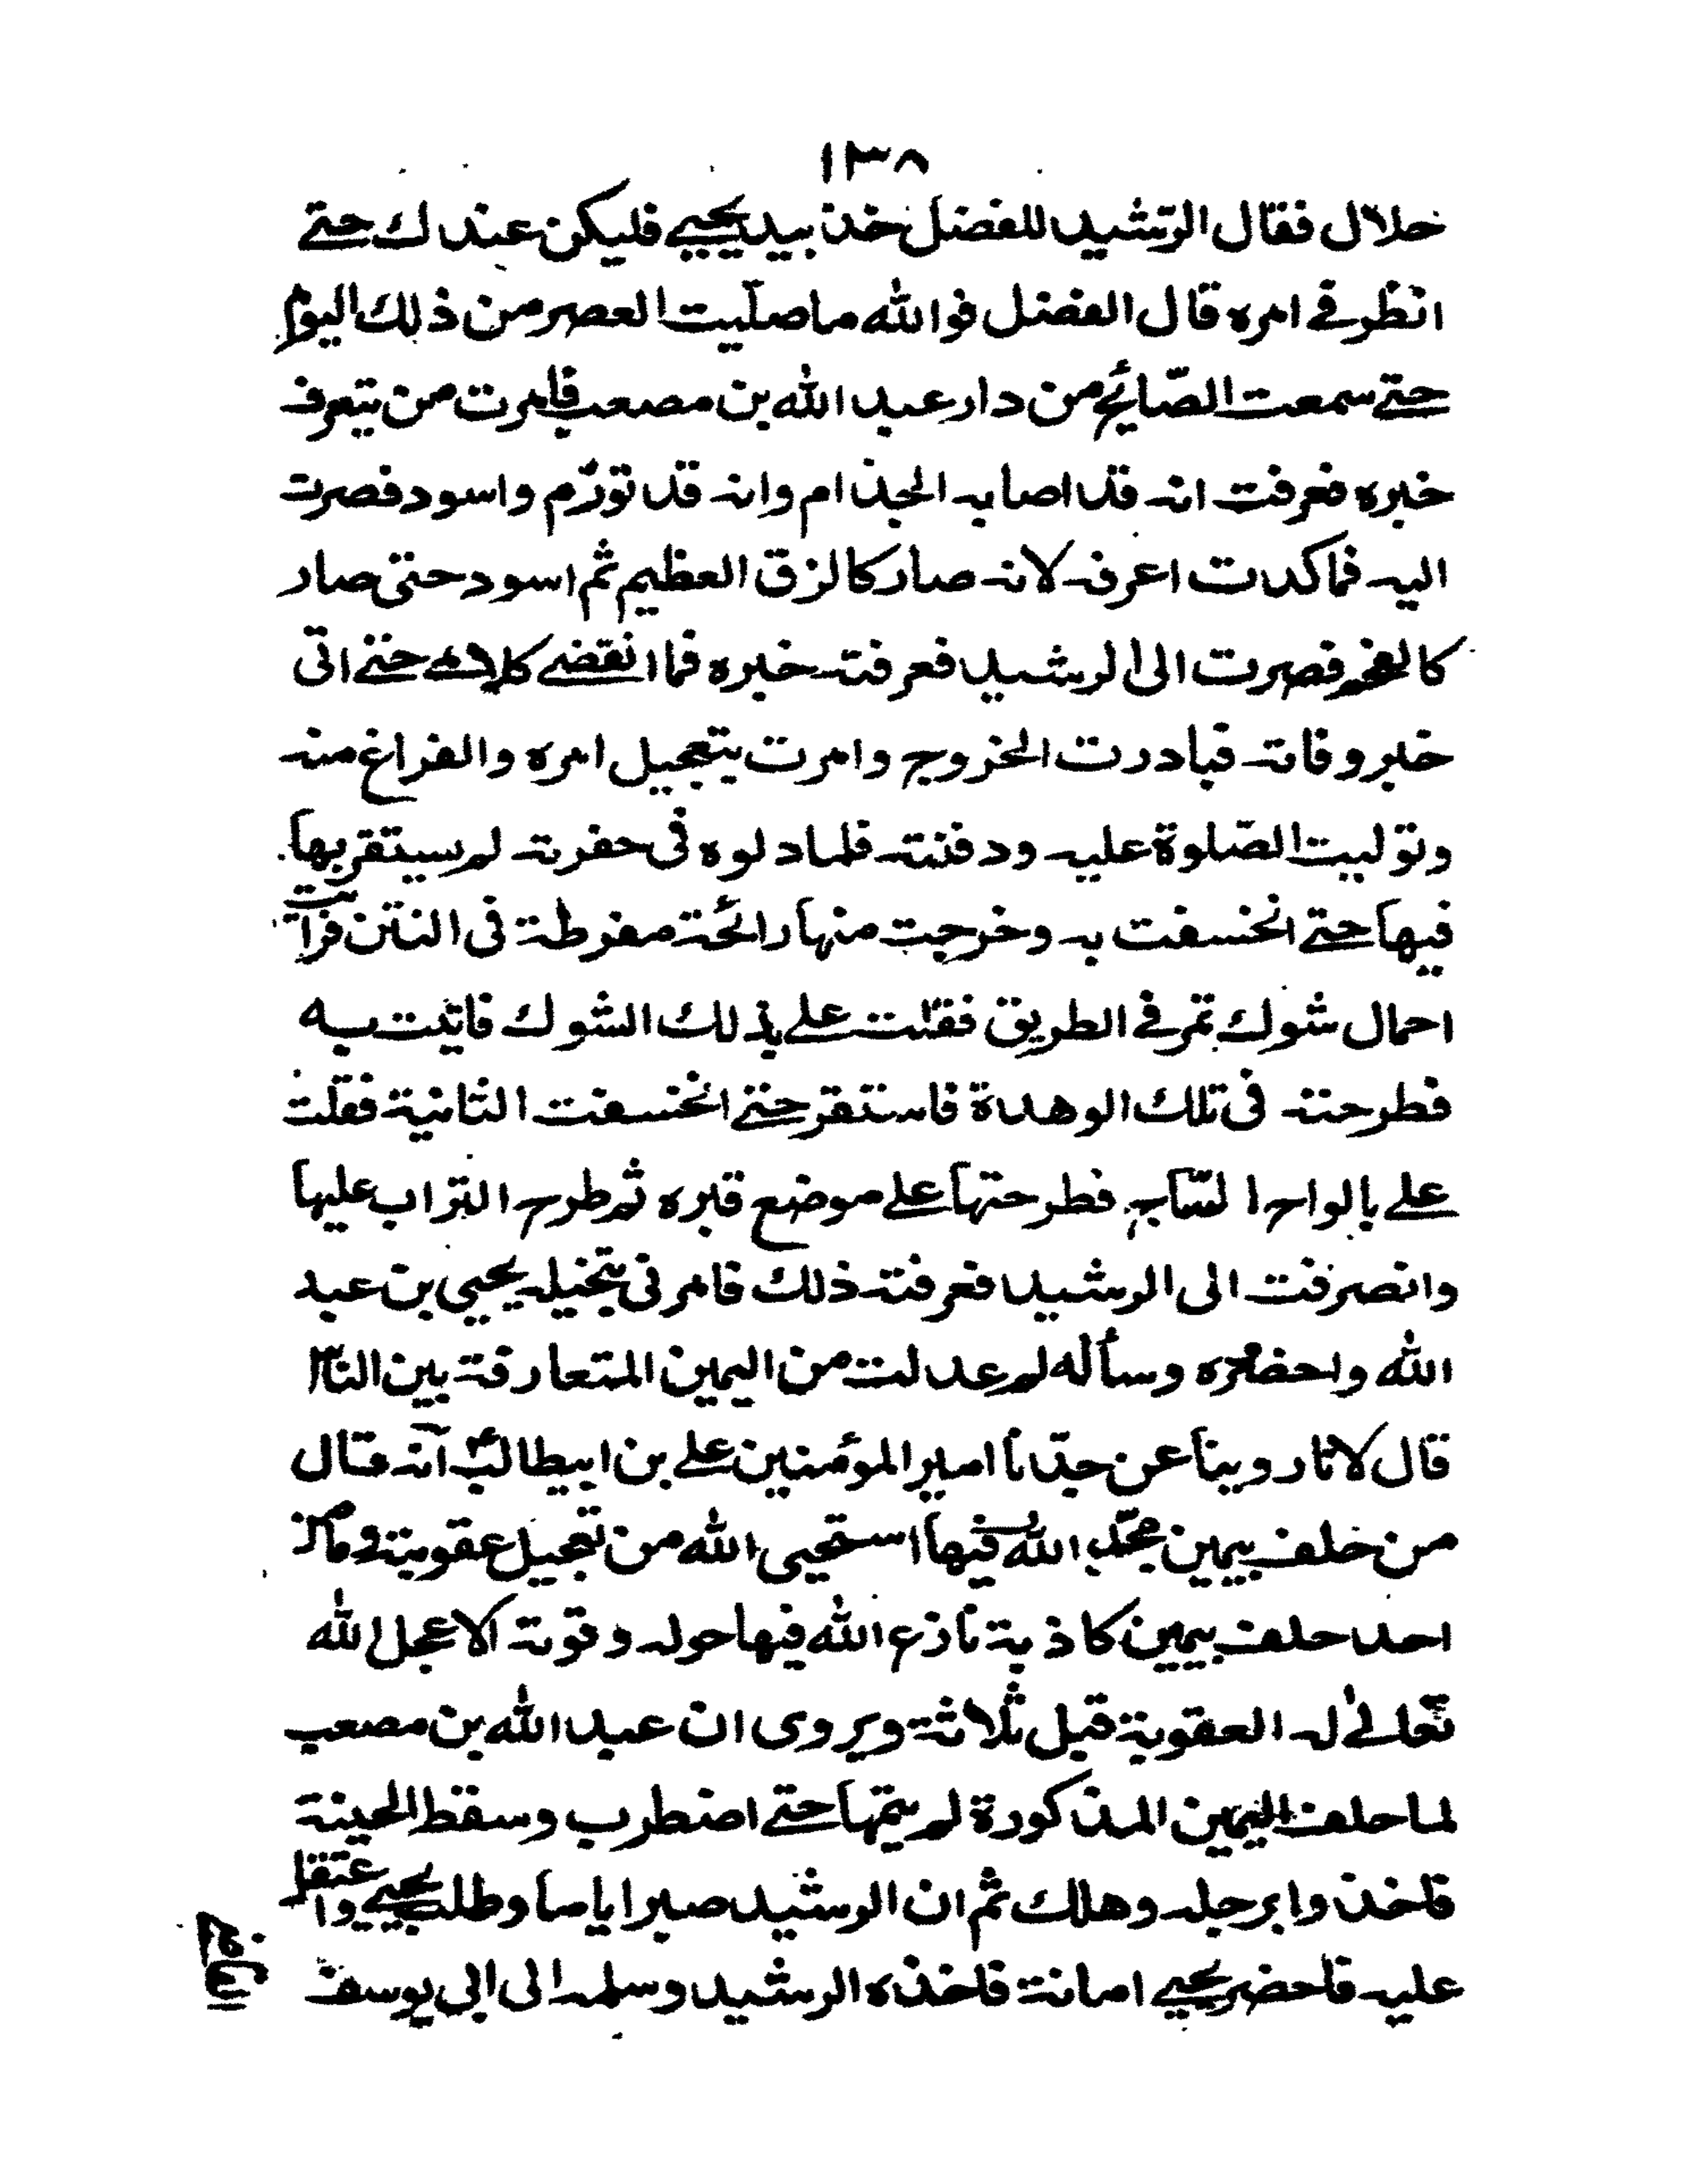 ١٣٨
خلال فقال الرّشيد للفضل خذ بيد يحيي فليكن عندك حتے
انظر في امره قال الفضل فوالله ما صلّيت العصر من ذلك اليوم
حتے سمعت الصّائح من دار عبد الله بن مصعب فامرت من يتعرف
خبره فعرفت انه قد اصابه الجذام وانه قد تورّم واسود فصرت
اليه فما كدت اعرفه لانه صار كالزق العظيم ثم اسود حتى صار
كالفحم فصرت الى الرشيد فعرفته خبره فما انقضے كلامے حتے اتى
خبر وفاته فبادرت الخروج وامرت بتعجيل امره والفراغ منه
وتوليت الصّلوة عليه ودفنته فلما دلوه فى حفرته لم يستقر بها
فيها حتے انخسفت به وخرجت منها رائحة مفرطة فى النتن فرأيت
احمال شوك تمر في الطريق فقلت علي بذلك الشوك فاتيت به
فطرحته فى تلك الوهدة فاستقر حتے انخسفت الثانية فقلت
علي بالواح الساج فطرحتها على موضع قبره ثم طرح التراب عليها
وانصرفت الى الرشيد فعرفته ذلك فامرنى بتخليه يحيى بن عبد
الله واحضره وسأله لم عدلت من اليمين المتعارفة بين الناس
قال لانا روينا عن جدّنا امير المؤمنين علي بن ابيطالب انّه قال
من حلف بيمين مجّد الله فيها استحيى الله من تعجيل عقوبته وما من
احد حلف بيمين كاذبة نازع الله فيها حوله وقوته الا عجل الله
تعالى له العقوبة قبل ثلاثة ويروى ان عبد الله بن مصعب
لما حلف اليمين المذكورة لم يتمها حتے اضطرب وسقط لجنبه
فاخذوا برجله وهلك ثم ان الرشيد صبر اياما وطلب يحيي واعتقل
عليه فاحضر يحيي امانة فاخذه الرشيد وسلمه الى ابي يوسف